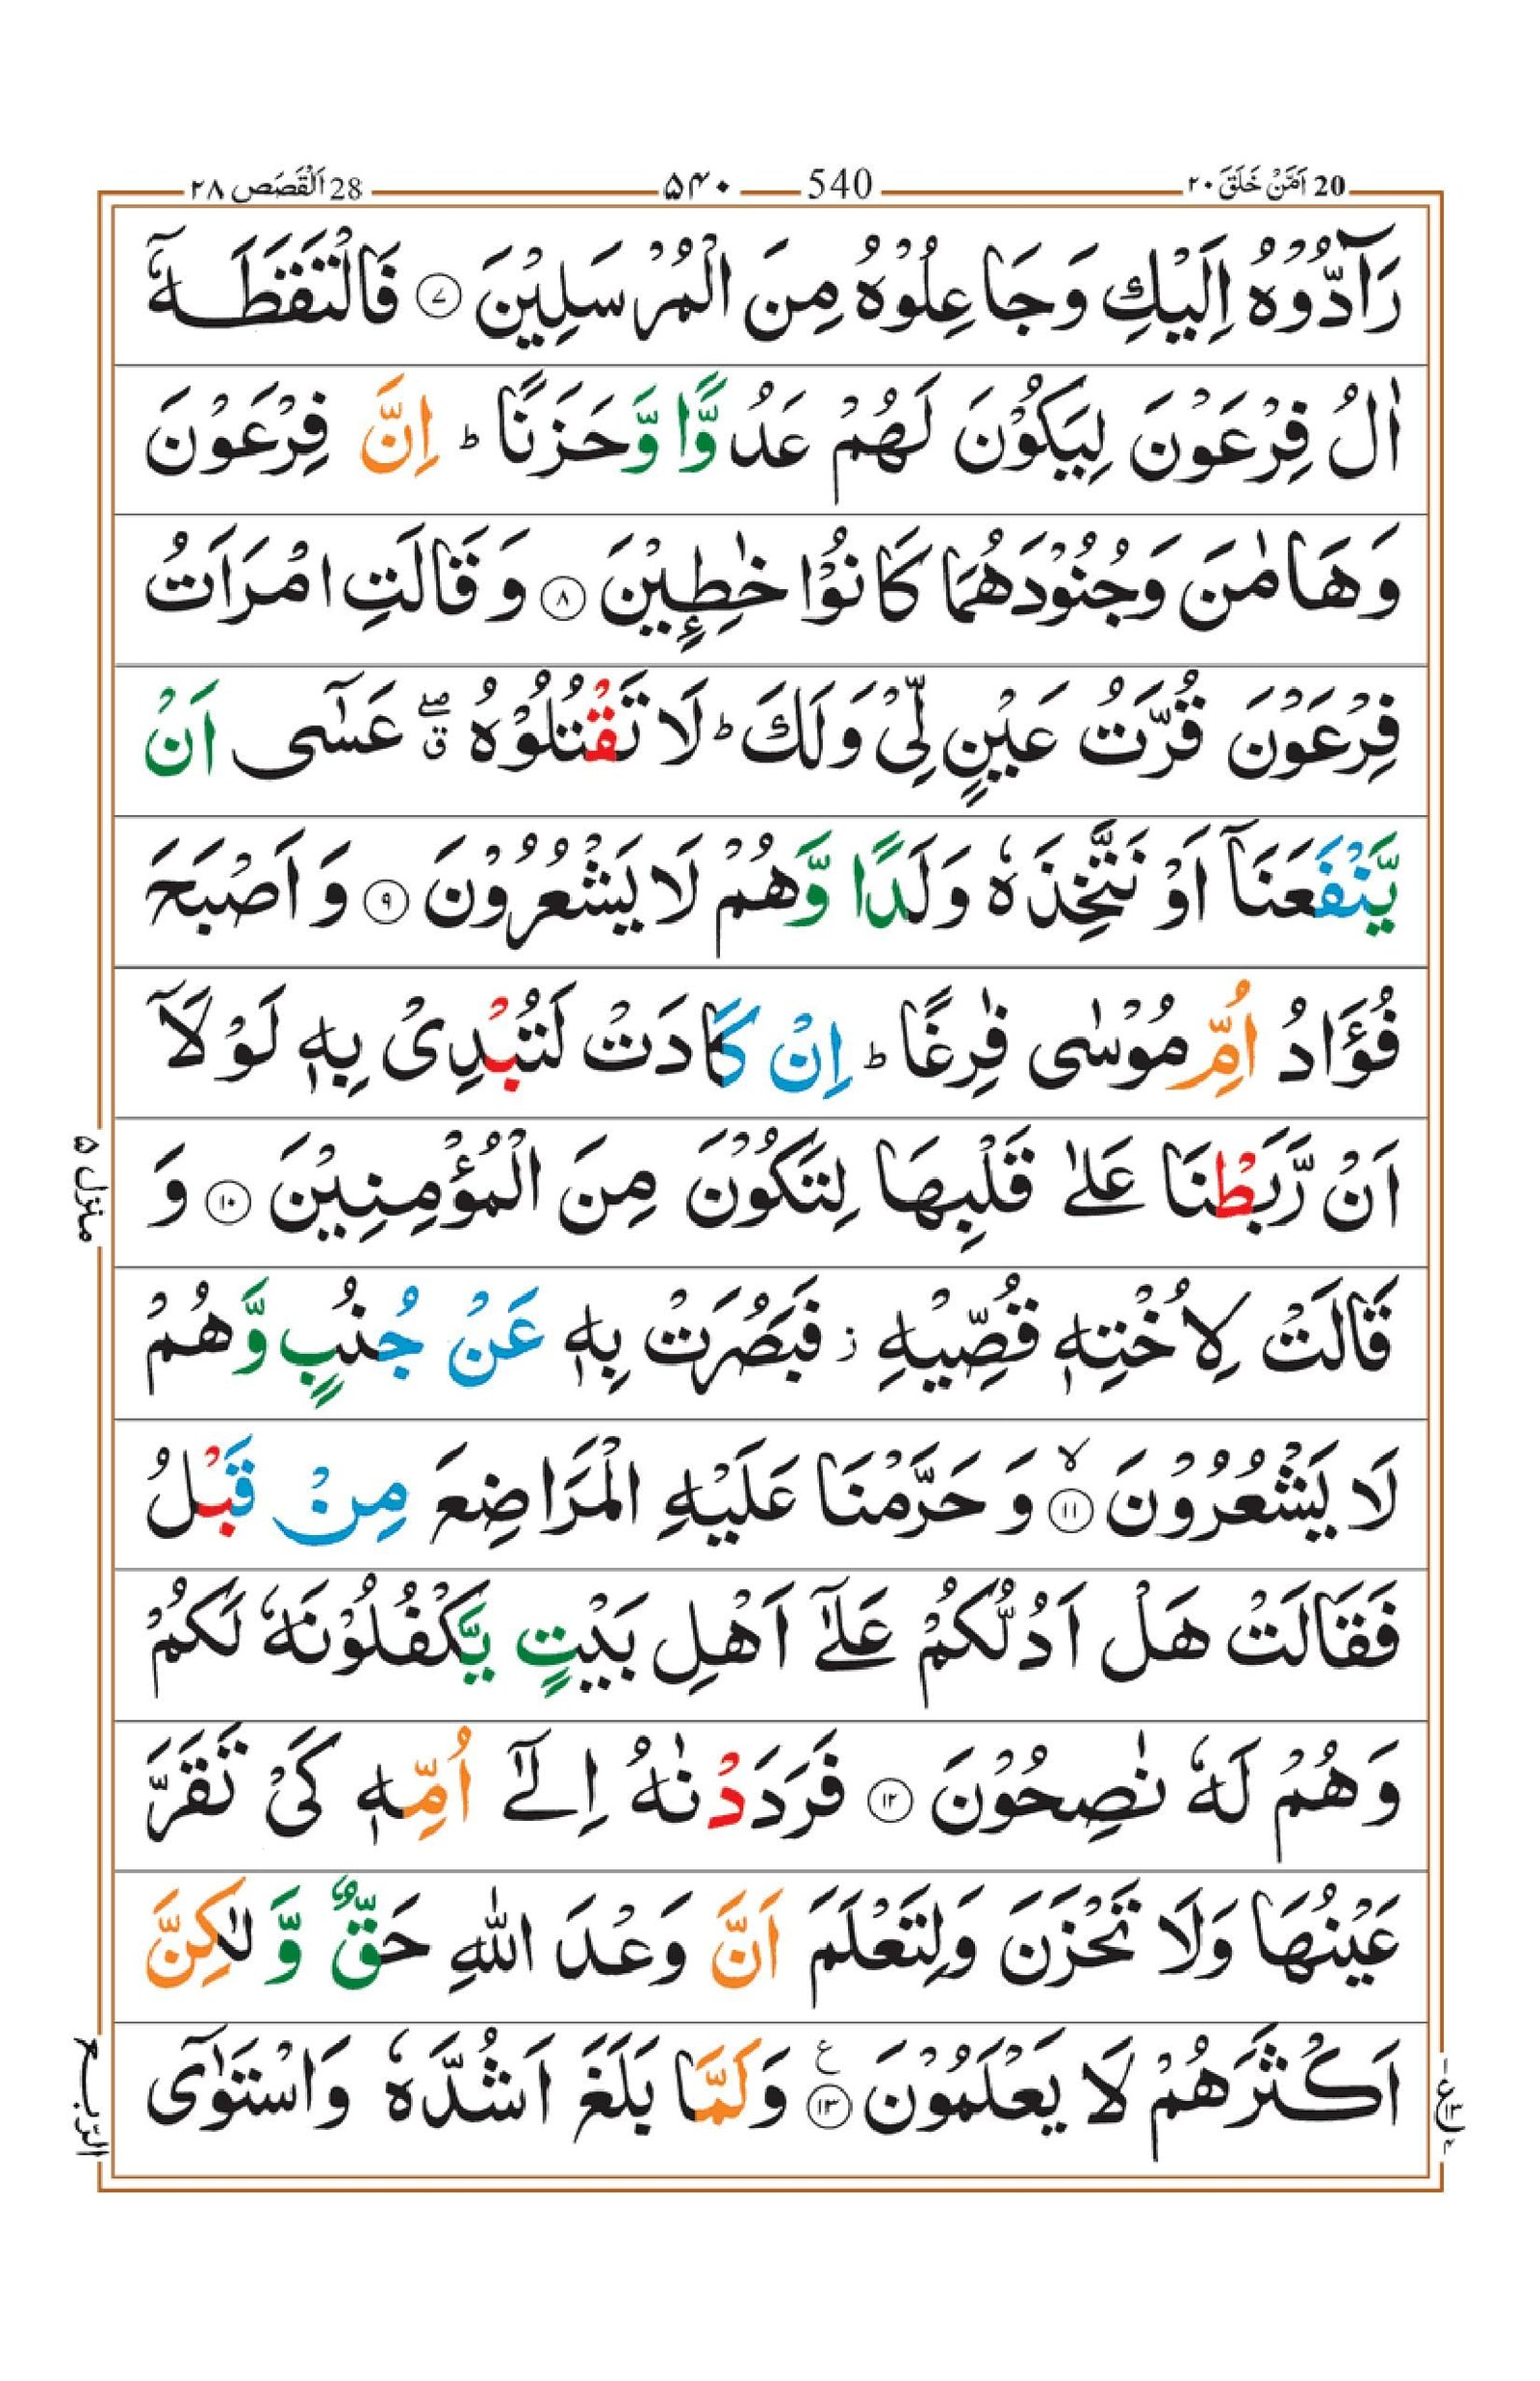 20 اَمَّنْ خَلَقَ ۲۰ 540 ۵۴۰ 28 اَلْقَصَص ۲۸
رَآدُّوْهُ اِلَيْكِ وَجَاعِلُوْهُ مِنَ الْمُرْسَلِيْنَ ۷ فَالْتَقَطَهٗۤ
اٰلُ فِرْعَوْنَ لِيَكُوْنَ لَهُمْ عَدُوًّا وَّحَزَنًا ؕ اِنَّ فِرْعَوْنَ
وَهَامٰنَ وَجُنُوْدَهُمَا كَانُوْا خٰطِـِٕيْنَ ۸ وَقَالَتِ امْرَاَتُ
فِرْعَوْنَ قُرَّتُ عَيْنٍ لِّيْ وَلَكَ ؕ لَا تَقْتُلُوْهُ ۖق عَسٰۤى اَنْ
يَّنْفَعَنَاۤ اَوْ نَتَّخِذَهٗ وَلَدًا وَّهُمْ لَا يَشْعُرُوْنَ ۹ وَاَصْبَحَ
فُؤَادُ اُمِّ مُوْسٰى فٰرِغًا ؕ اِنْ كَادَتْ لَتُبْدِيْ بِهٖ لَوْلَاۤ
اَنْ رَّبَطْنَا عَلٰى قَلْبِهَا لِتَكُوْنَ مِنَ الْمُؤْمِنِيْنَ ۱۰ وَ
قَالَتْ لِاُخْتِهٖ قُصِّيْهِ ز فَبَصُرَتْ بِهٖ عَنْ جُنُبٍ وَّهُمْ
لَا يَشْعُرُوْنَ ۙ ۱۱ وَحَرَّمْنَا عَلَيْهِ الْمَرَاضِعَ مِنْ قَبْلُ
فَقَالَتْ هَلْ اَدُلُّكُمْ عَلٰۤى اَهْلِ بَيْتٍ يَّكْفُلُوْنَهٗ لَكُمْ
وَهُمْ لَهٗ نٰصِحُوْنَ ۱۲ فَرَدَدْنٰهُ اِلٰۤى اُمِّهٖ كَيْ تَقَرَّ
عَيْنُهَا وَلَا تَحْزَنَ وَلِتَعْلَمَ اَنَّ وَعْدَ اللّٰهِ حَقٌّ وَّلٰكِنَّ
اَكْثَرَهُمْ لَا يَعْلَمُوْنَ ع ۱۳ وَلَمَّا بَلَغَ اَشُدَّهٗ وَاسْتَوٰۤى
منزل ۵
الرّبع